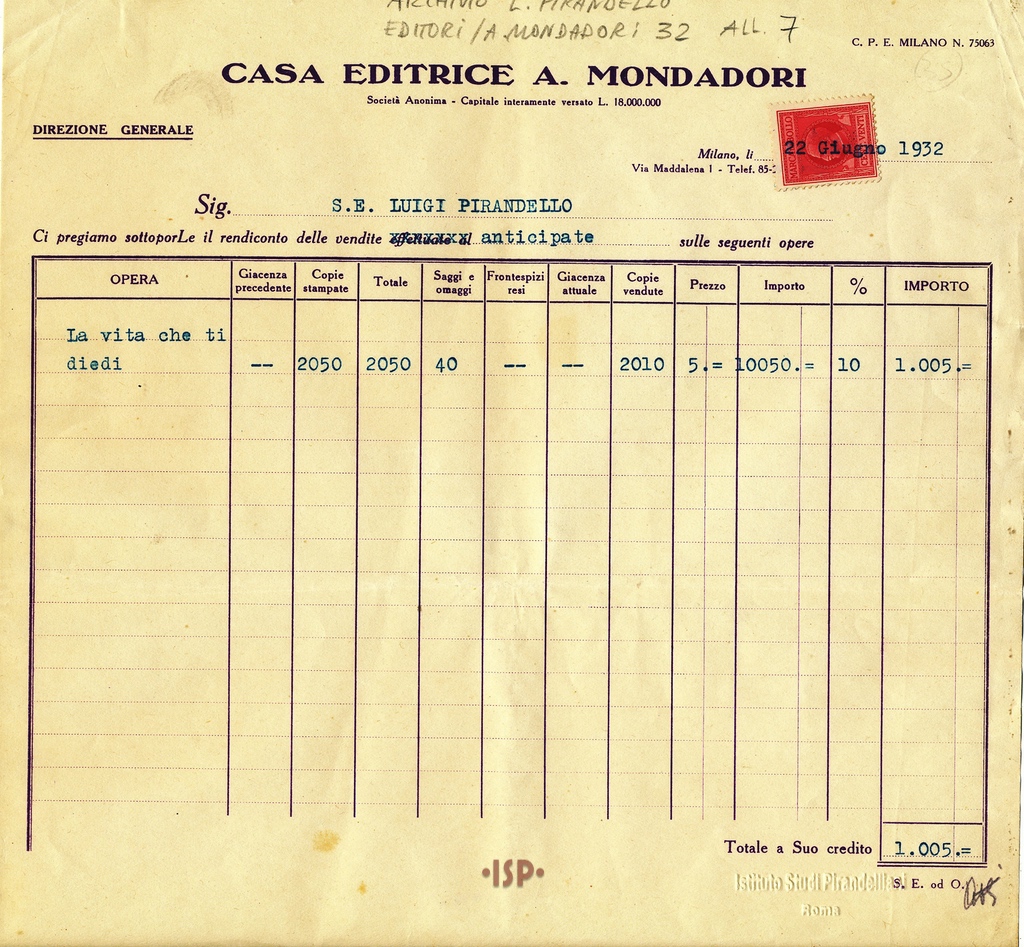 ARCHIVIO L. PIRANDELLO
EDITORI/A. MONDADORI 32 ALL. 7
C. P. E. MILANO N. 75063
CASA EDITRICE A. MONDADORI
Società Anonima - Capitale interamente versato L. 18.000.000
DIREZIONE GENERALE
Milano, li 22 Giugno 1932
Via Maddalena 1 - Telef. 85-
Sig. S.E. LUIGI PIRANDELLO
Ci pregiamo sottoporLe il rendiconto delle vendite effettuate al anticipate sulle seguenti opere
OPERA Giacenza precedente Copie stampate Totale Saggi e omaggi Frontespizi resi Giacenza attuale Copie vendute Prezzo Importo % IMPORTO
La vita che ti
diedi -- 2050 2050 40 -- -- 2010 5.= 10050.= 10 1.005.=
Totale a Suo credito 1.005.=
·ISP·
Istituto Studi Pirandelliani
Roma
S. E. od O.